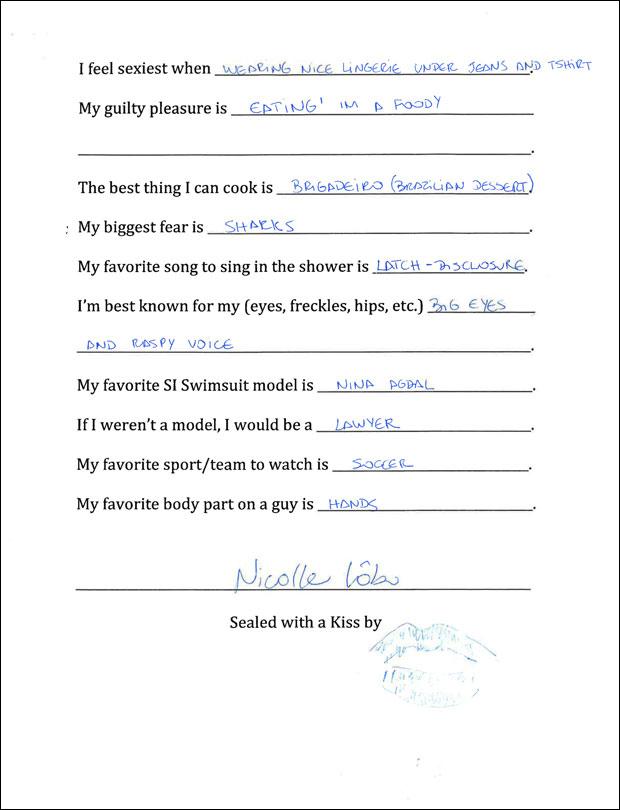 I feel sexiest when WEARING NICE LINGERIE UNDER JEANS AND TSHIRT.
My guilty pleasure is EATING! IM A FOODY
.
The best thing I can cook is BRIGADEIRO (BRAZILIAN DESSERT).
: My biggest fear is SHARKS.
My favorite song to sing in the shower is LATCH - DISCLOSURE.
I'm best known for my (eyes, freckles, hips, etc.) BIG EYES
AND RASPY VOICE.
My favorite SI Swimsuit model is NINA AGDAL.
If I weren't a model, I would be a LAWYER.
My favorite sport/team to watch is SOCCER.
My favorite body part on a guy is HANDS.
Nicolle Lôbo
Sealed with a Kiss by